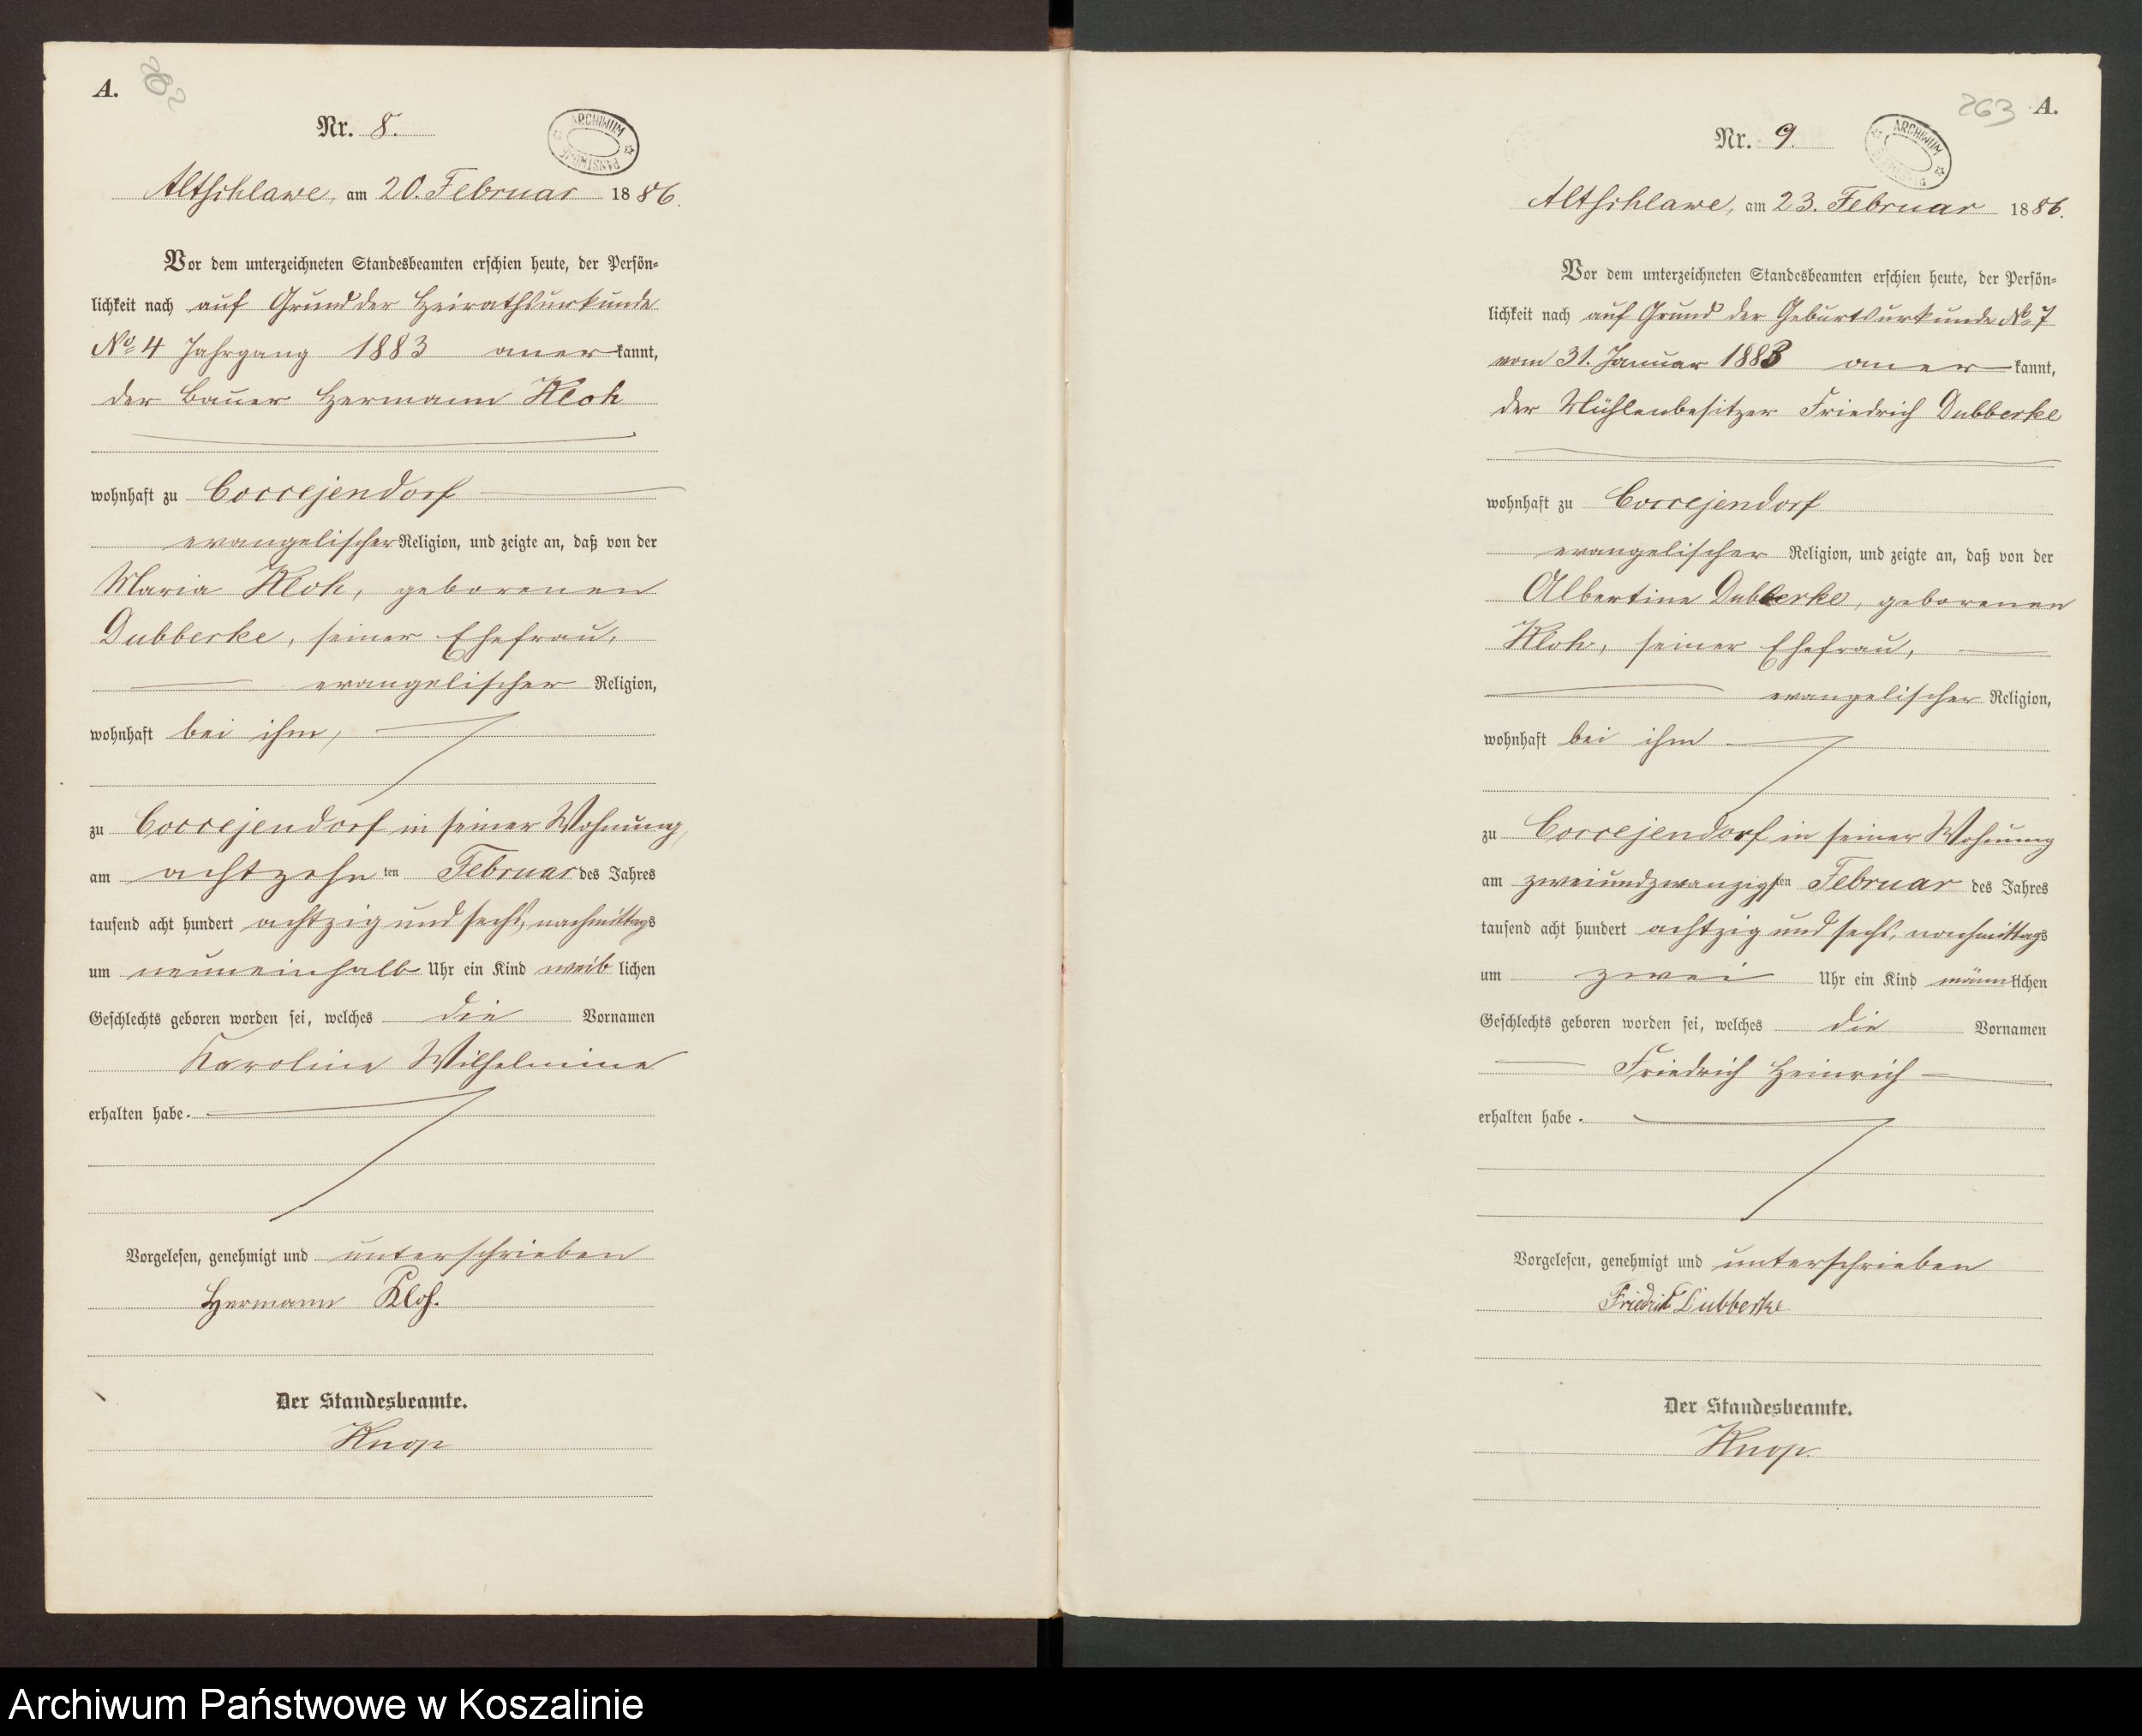 A.
262
Nr. 8.
ARCHIWUM PAŃSTWOWE
Altschlawe, am 20. Februar 1886.
Vor dem unterzeichneten Standesbeamten erschien heute, der Persön-
lichkeit nach auf Grund der Heirathsurkunde
No 4 Jahrgang 1883 anerkannt,
der Bauer Hermann Kloh
wohnhaft zu Coccejendorf
evangelischer Religion, und zeigte an, daß von der
Maria Kloh, geborenen
Dubberke, seiner Ehefrau,
evangelischer Religion,
wohnhaft bei ihm,
zu Coccejendorf in seiner Wohnung,
am achtzehn ten Februar des Jahres
tausend acht hundert achtzig und sechs, nachmittags
um neuneinhalb Uhr ein Kind weiblichen
Geschlechts geboren worden sei, welches die Vornamen
Karoline Wilhelmine
erhalten habe.
Vorgelesen, genehmigt und unterschrieben
Hermann Kloh.
Der Standesbeamte.
Knop
263 A.
Nr. 9.
ARCHIWUM
Altschlawe, am 23. Februar 1886.
Vor dem unterzeichneten Standesbeamten erschien heute, der Persön-
lichkeit nach auf Grund der Geburtsurkunde No 7
vom 31. Januar 1883 anerkannt,
der Mühlenbesitzer Friedrich Dubberke
wohnhaft zu Coccejendorf
evangelischer Religion, und zeigte an, daß von der
Albertine Dubberke, geborenen
Kloh, seiner Ehefrau,
evangelischer Religion,
wohnhaft bei ihm
zu Coccejendorf in seiner Wohnung
am zweiundzwanzigsten Februar des Jahres
tausend acht hundert achtzig und sechs, nachmittags
um zwei Uhr ein Kind männlichen
Geschlechts geboren worden sei, welches die Vornamen
Friedrich Heinrich
erhalten habe.
Vorgelesen, genehmigt und unterschrieben
Friedrich Dubberke
Der Standesbeamte.
Knop.
Archiwum Państwowe w Koszalinie